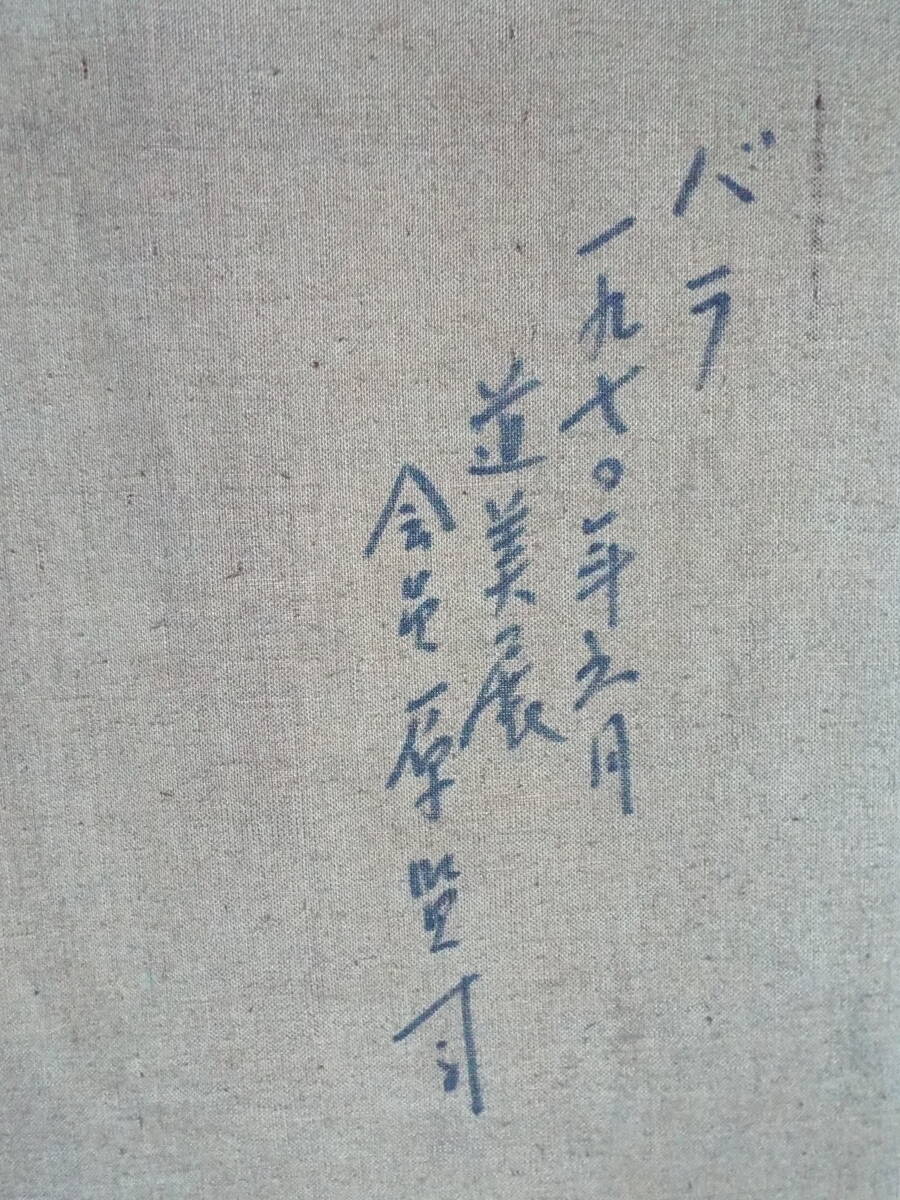 バラ
一九七〇年五月
道美展
会員 原賢司